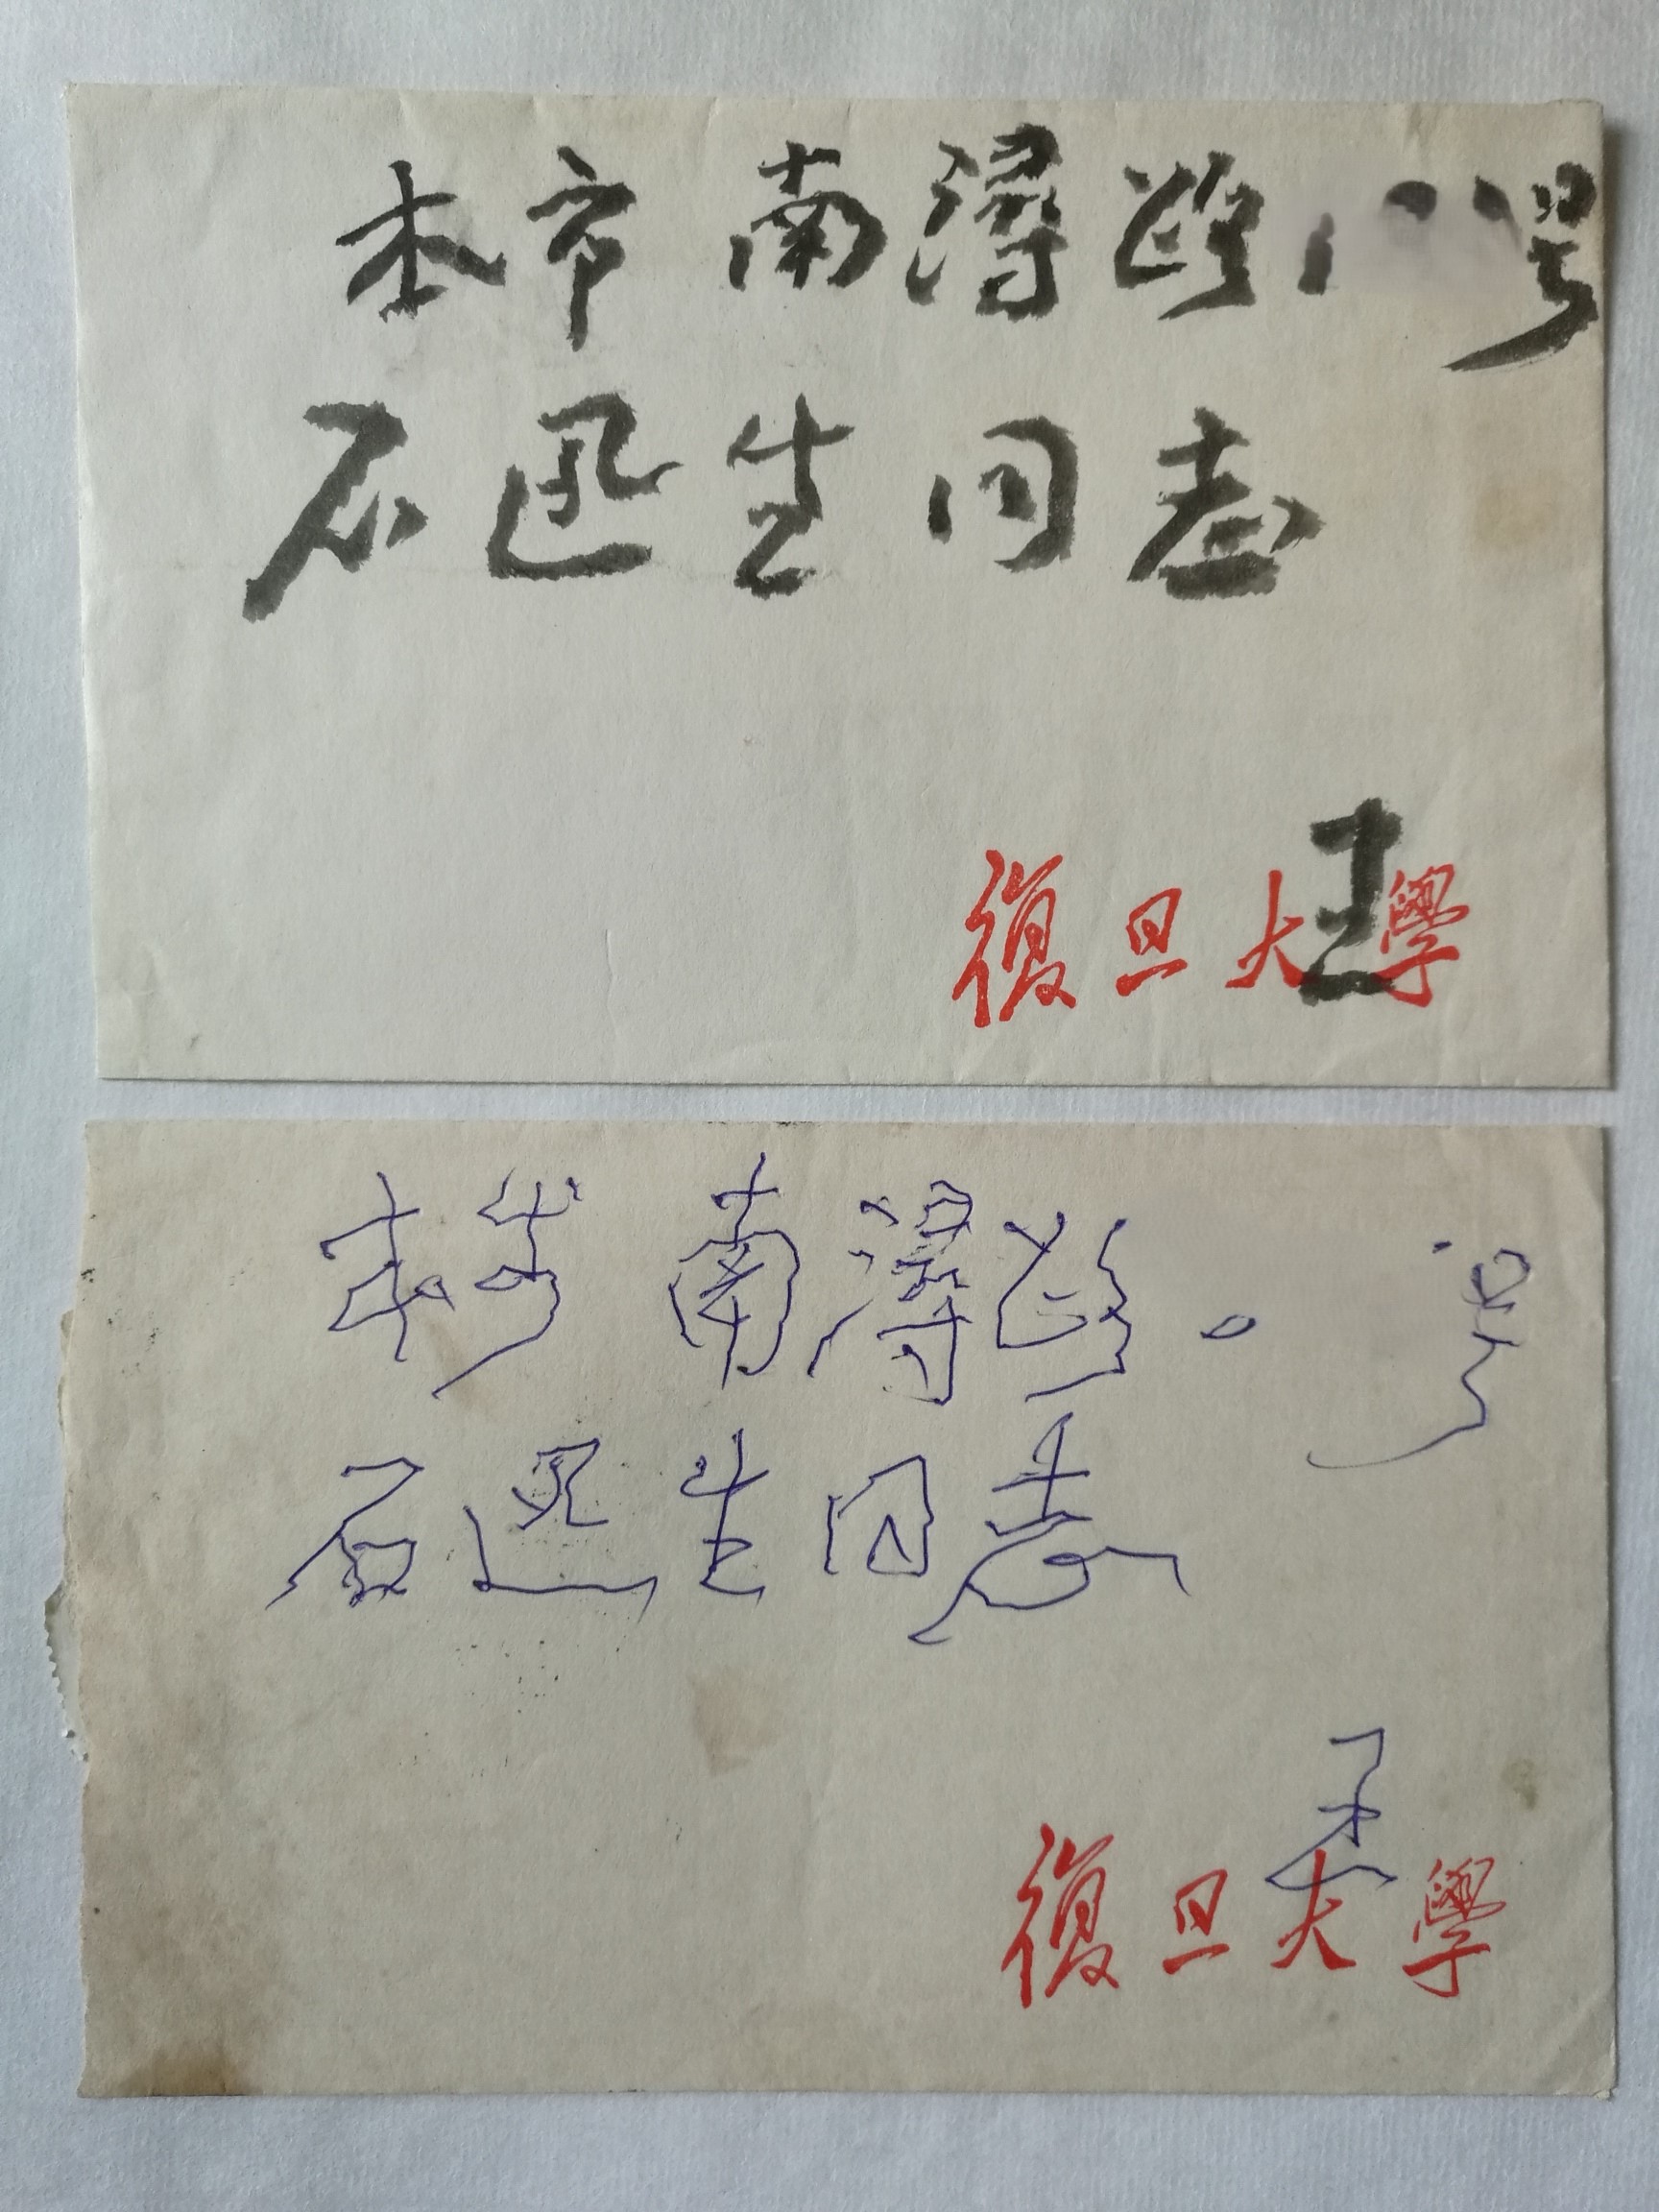 本市南潯路 號
石迅生同志
復旦大學
王
本市南潯路 號
石迅生同志
王
復旦大學